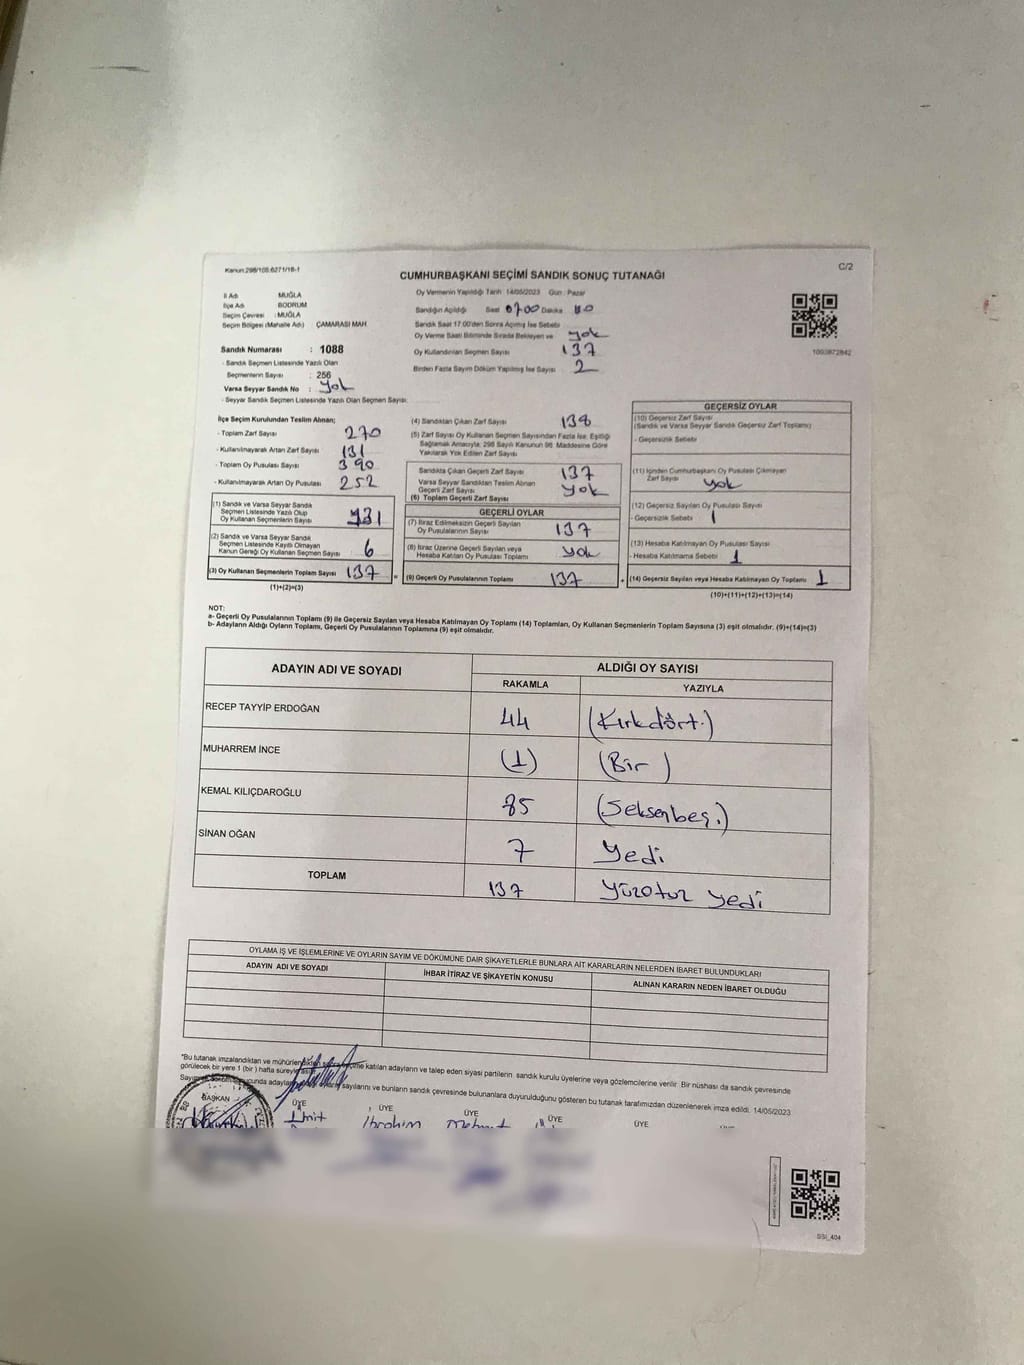 Kanun:298/105.6271/18-1
C/2
CUMHURBAŞKANI SEÇİMİ SANDIK SONUÇ TUTANAĞI
İl Adı MUĞLA
İlçe Adı BODRUM
Seçim Çevresi : MUĞLA
Seçim Bölgesi (Mahalle Adı) ÇAMARASI MAH.
Sandık Numarası : 1088
- Sandık Seçmen Listesinde Yazılı Olan
Seçmenlerin Sayısı : 256
Varsa Seyyar Sandık No : yok
- Seyyar Sandık Seçmen Listesinde Yazılı Olan Seçmen Sayısı:
Oy Vermenin Yapıldığı Tarih 14/05/2023 Gün : Pazar
Sandığın Açıldığı Saat Dakika
Sandık Saat 17:00'den Sonra Açılmış İse Sebebi
Oy Verme Saati Bitiminde Sırada Bekleyen ve yok
Oy Kullandırılan Seçmen Sayısı 137
Birden Fazla Sayım Döküm Yapılmış İse Sayısı 2
1093872842
İlçe Seçim Kurulundan Teslim Alınan;
- Toplam Zarf Sayısı 270
- Kullanılmayarak Artan Zarf Sayısı 131
- Toplam Oy Pusulası Sayısı 390
- Kullanılmayarak Artan Oy Pusulası 252
(1) Sandık ve Varsa Seyyar Sandık
Seçmen Listesinde Yazılı Olup
Oy Kullanan Seçmenlerin Sayısı 131
(2) Sandık ve Varsa Seyyar Sandık
Seçmen Listesinde Kayıtlı Olmayan
Kanun Gereği Oy Kullanan Seçmen Sayısı 6
(3) Oy Kullanan Seçmenlerin Toplam Sayısı 137
(1)+(2)=(3)
(4) Sandıktan Çıkan Zarf Sayısı 138
(5) Zarf Sayısı Oy Kullanan Seçmen Sayısından Fazla İse, Eşitliği
Sağlamak Amacıyla, 298 Sayılı Kanunun 98. Maddesine Göre
Yakılarak Yok Edilen Zarf Sayısı
Sandıkta Çıkan Geçerli Zarf Sayısı 137
Varsa Seyyar Sandıktan Teslim Alınan
Geçerli Zarf Sayısı yok
(6) Toplam Geçerli Zarf Sayısı
GEÇERLİ OYLAR
(7) İtiraz Edilmeksizin Geçerli Sayılan
Oy Pusulalarının Sayısı 137
(8) İtiraz Üzerine Geçerli Sayılan veya
Hesaba Katılan Oy Pusulası Toplamı yok
(9) Geçerli Oy Pusulalarının Toplamı 137
GEÇERSİZ OYLAR
(10) Geçersiz Zarf Sayısı
(Sandık ve Varsa Seyyar Sandık Geçersiz Zarf Toplamı)
- Geçersizlik Sebebi
(11) İçinden Cumhurbaşkanı Oy Pusulası Çıkmayan
Zarf Sayısı yok
(12) Geçersiz Sayılan Oy Pusulası Sayısı
- Geçersizlik Sebebi 1
(13) Hesaba Katılmayan Oy Pusulası Sayısı
- Hesaba Katılmama Sebebi 1
(14) Geçersiz Sayılan veya Hesaba Katılmayan Oy Toplamı 1
(10)+(11)+(12)+(13)=(14)
NOT:
a- Geçerli Oy Pusulalarının Toplamı (9) ile Geçersiz Sayılan veya Hesaba Katılmayan Oy Toplamı (14) Toplamları, Oy Kullanan Seçmenlerin Toplam Sayısına (3) eşit olmalıdır. (9)+(14)=(3)
b- Adayların Aldığı Oyların Toplamı, Geçerli Oy Pusulalarının Toplamına (9) eşit olmalıdır.
ADAYIN ADI VE SOYADI ALDIĞI OY SAYISI
RAKAMLA YAZIYLA
RECEP TAYYİP ERDOĞAN 44 (Kırkdört.)
MUHARREM İNCE (1) (Bir)
KEMAL KILIÇDAROĞLU 85 (Seksenbeş.)
SİNAN OĞAN 7 Yedi
TOPLAM 137 Yüzotuz yedi
OYLAMA İŞ VE İŞLEMLERİNE VE OYLARIN SAYIM VE DÖKÜMÜNE DAİR ŞİKAYETLERLE BUNLARA AİT KARARLARIN NELERDEN İBARET BULUNDUKLARI
ADAYIN ADI VE SOYADI İHBAR İTİRAZ VE ŞİKAYETİN KONUSU ALINAN KARARIN NEDEN İBARET OLDUĞU
*Bu tutanak imzalandıktan ve mühürlendikten katılan adayların ve talep eden siyasi partilerin. sandık kurulu üyelerine veya gözlemcilerine verilir. Bir nüshası da sandık çevresinde
görülecek bir yere 1 (bir) hafta süreyle
sayılarını ve bunların sandık çevresinde bulunanlara duyurulduğunu gösteren bu tutanak tarafımızdan düzenlenerek imza edildi. 14/05/2023
BAŞKAN ÜYE ÜYE ÜYE ÜYE ÜYE
Ümit İbrahim Mehmet
SSI_404